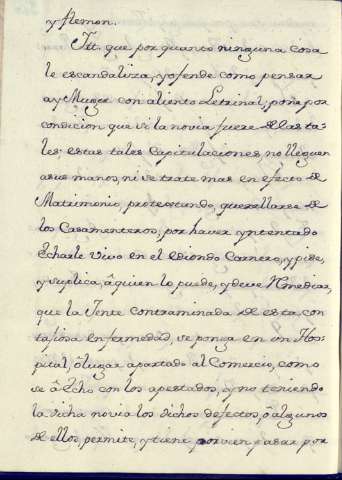 y flemon.
Itt. que por quanto ninguna cosa
le escandaliza, y ofende como pensar
ay Muger con aliento Letrinal, pone por
condicion que si la novia fuere de las ta-
les: estas tales Capitulaciones, no lleguen
a sus manos, ni se trate mas en efecto de
Matrimonio, protestando, querellarse de
los Casamenteros, por haver yntentado
Echarle vivo en el ediondo Carnero, y pide,
y suplica, â quien lo puede, y deve Remediar,
que la Jente Contraminada de esta con
tajiosa enfermedad, se ponga en un Hos-
pital, ô lugar apartado al Comercio, como
se â Echo con los apestados, y no teniendo
la dicha novia los dichos defectos, ô algunos
de ellos, permite, y tiene por vien pasar por